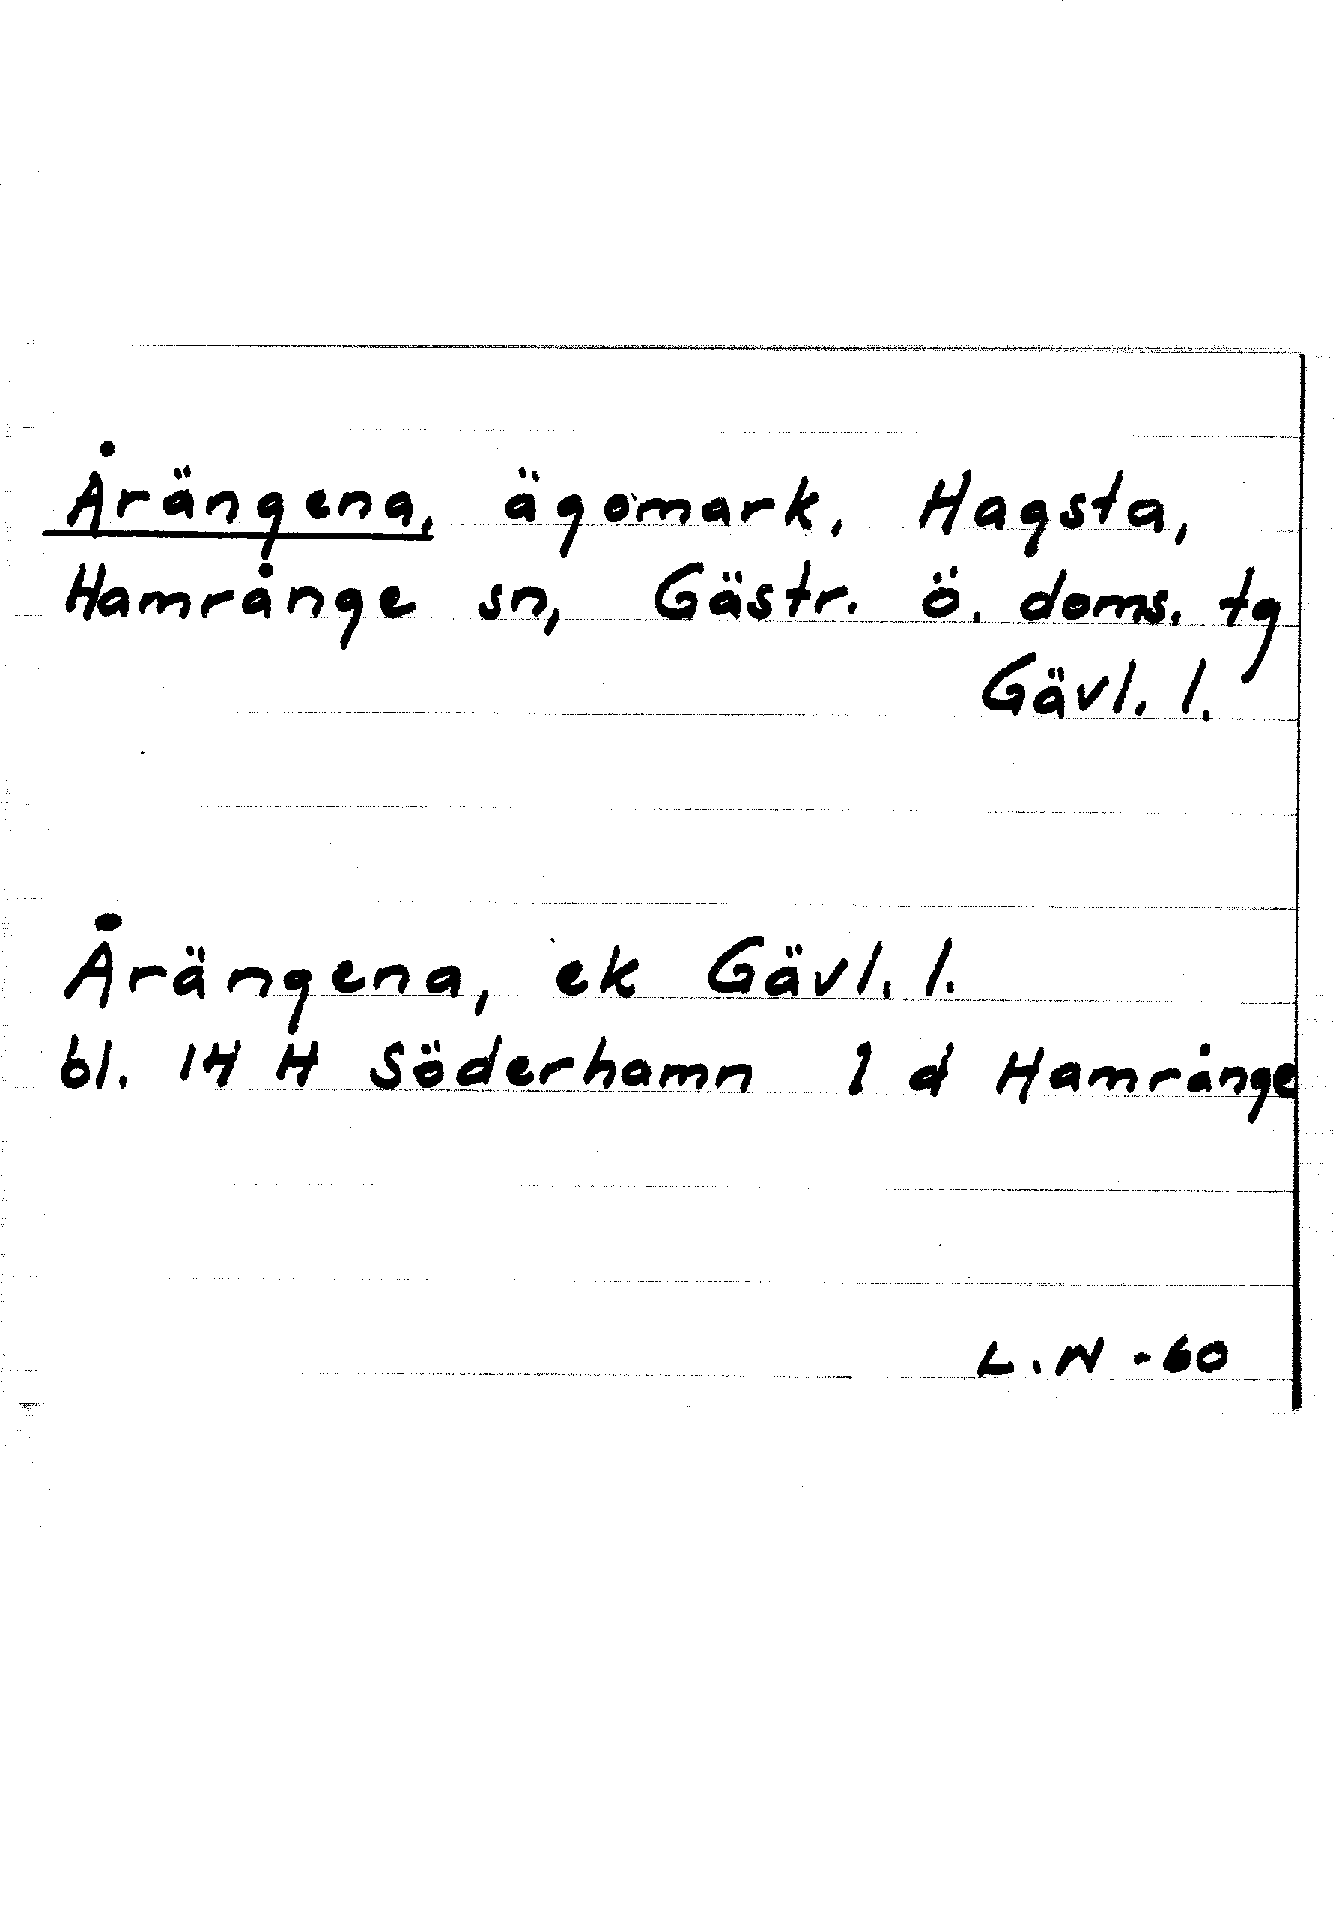 Årängena, ägomark, Hagsta,
Hamrånge sn, Gästr. ö. doms. tg
Gävl. l.
Årängena, ek Gävl. l.
bl. 14 H Söderhamn 1 d Hamrånge
L.N -60